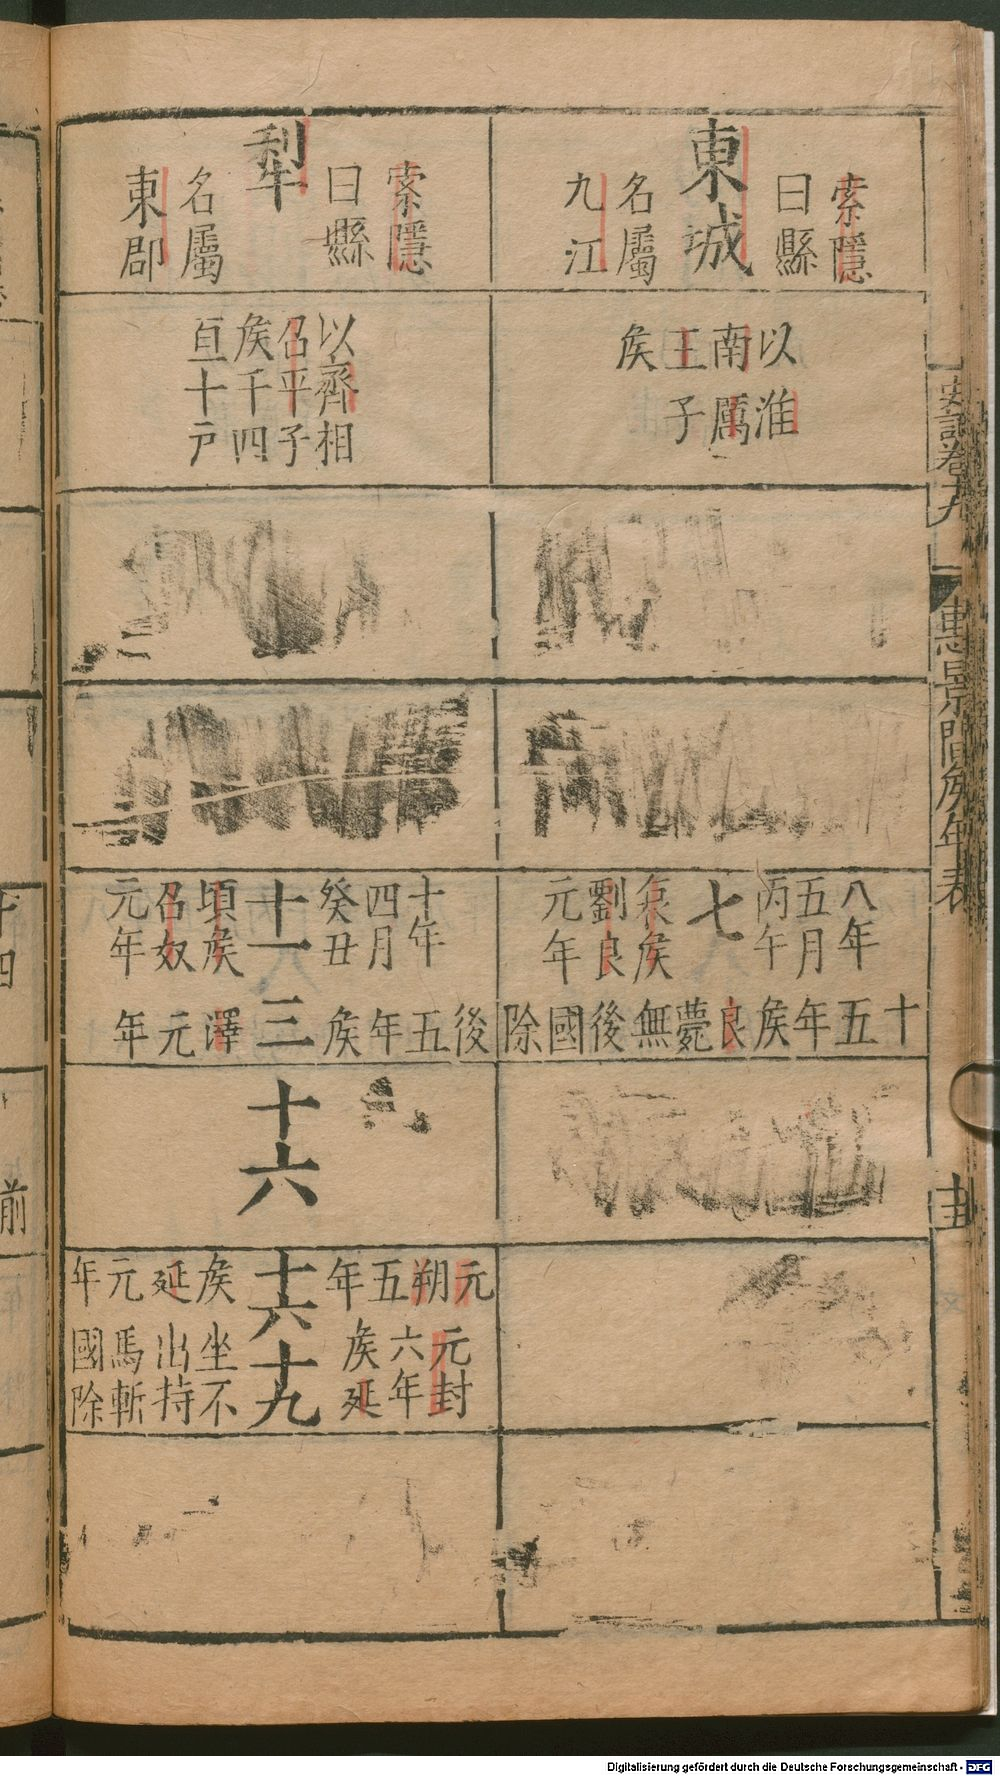 東城
索隱
曰縣
名屬
九江
以淮
南厲
王子
矦
八年
五月
丙午
七
哀矦
劉良
元年
十五年矦良薨無後國除
犁
索隱
曰縣
名屬
東郡
以齊相
召平子
矦千四
百一十戸
十年
四月
癸丑
十一
頃矦
召奴
元年
後五年矦
三
澤元年
十六
元朔五年
十六
矦延元年
元封
六年
矦延
十九
坐不
出持
馬斬
國除
史記卷十九
惠景間矦年表
前
Digitalisierung gefördert durch die Deutsche Forschungsgemeinschaft - DFG